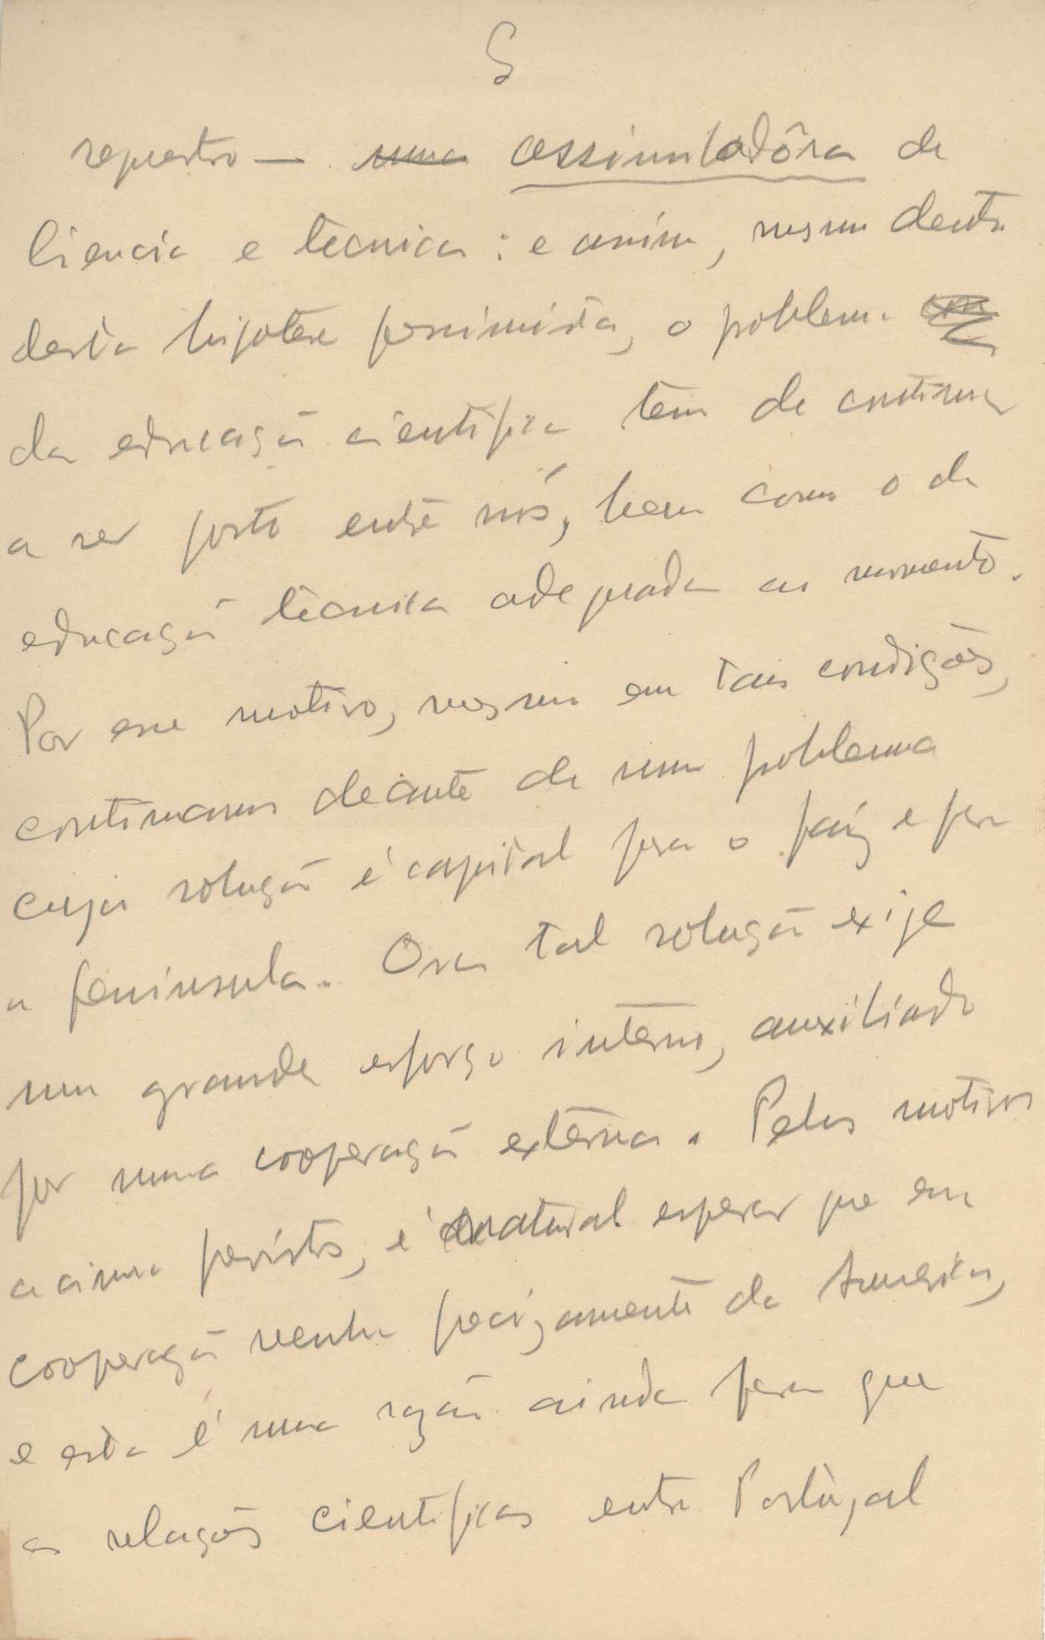 5
— uma assimiladôra de
Ciencia e técnica: e assim, mesmo dentro
desta hipotese pessimista, o problema
da educação cientifica tem de continuar
a ser posto entre nós, bem como o da
educação técnica adequada ao momento.
Por esse motivo, mesmo em tais condições,
continuamos deante de um problema
cuja solução é capital para o paiz e para
a peninsula. Ora tal solução exige
um grande esforço interno, auxiliado
por uma cooperação externa. Pelos motivos
acima previstos, é natural esperar que essa
cooperação venha precizamente da America,
e esta é uma razão ainda para que
as relações cientificas entre Portugal